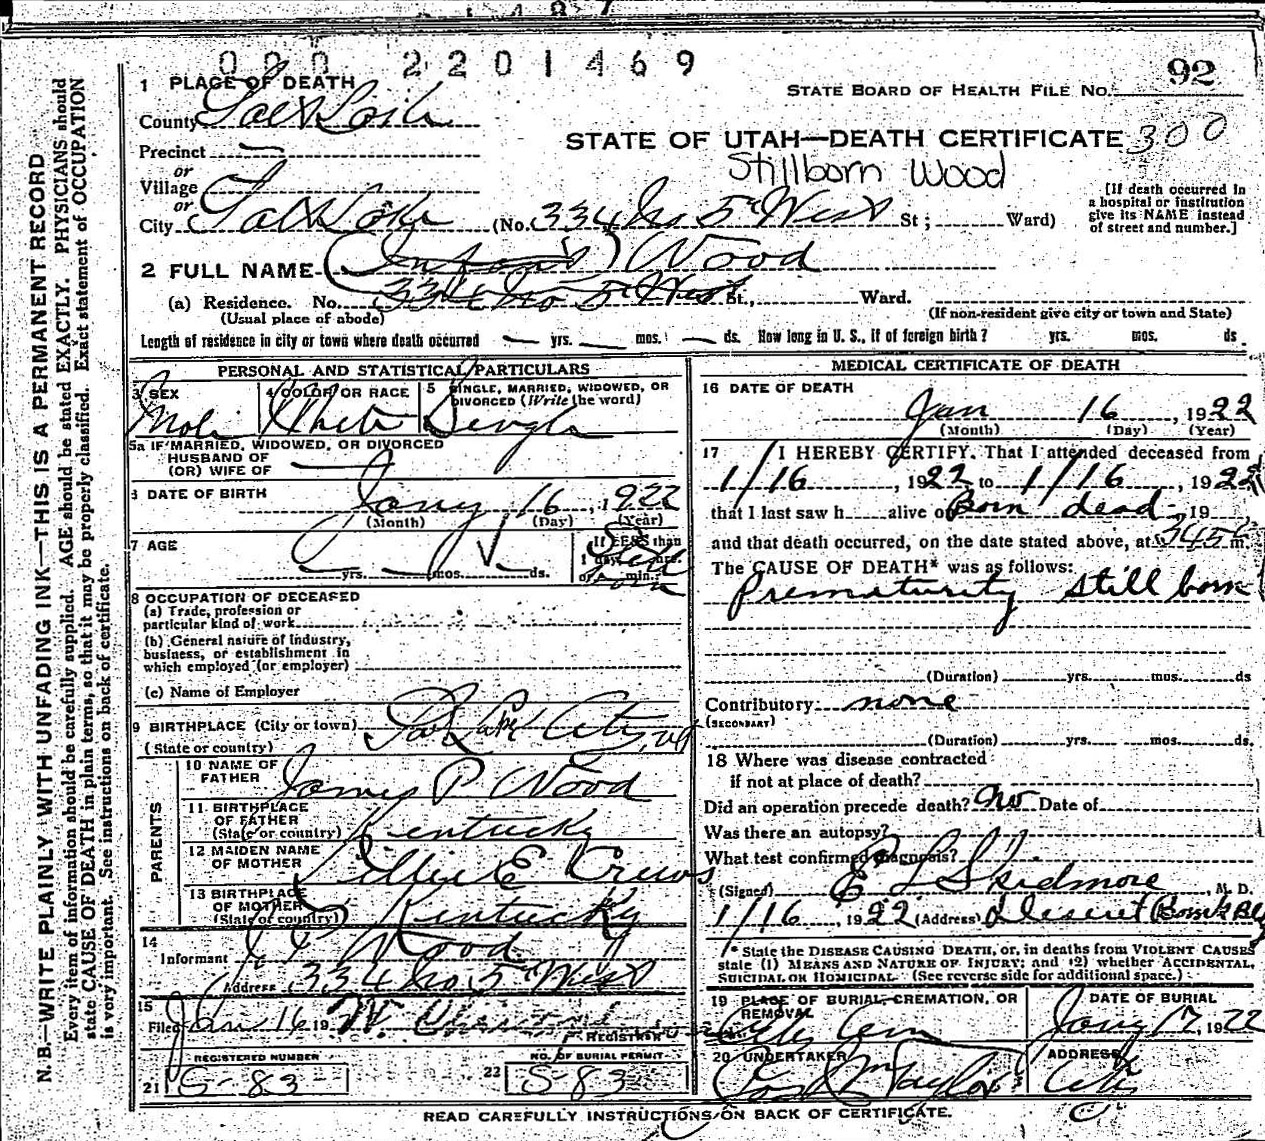 000 2201469
92
STATE BOARD OF HEALTH FILE NO.
STATE OF UTAH—DEATH CERTIFICATE 300
Stillborn Wood
1 PLACE OF DEATH
County Salt Lake
Precinct —
or
Village
or
City Salt Lake (No. 334 No 5th West St; Ward)
[If death occurred in
a hospital or institution
give its NAME instead
of street and number.]
2 FULL NAME (Infant) Wood
(a) Residence. No. 334 No 5th West St., Ward.
(Usual place of abode) (If non-resident give city or town and State)
Length of residence in city or town where death occurred — yrs. — mos. — ds. How long in U. S., if of foreign birth? yrs. mos. ds.
PERSONAL AND STATISTICAL PARTICULARS
3 SEX 4 COLOR OR RACE 5 SINGLE, MARRIED, WIDOWED, OR
DIVORCED (Write the word)
Male White Single
5a IF MARRIED, WIDOWED, OR DIVORCED
HUSBAND OF
(OR) WIFE OF —
6 DATE OF BIRTH Jany 16, 1922
(Month) (Day) (Year)
7 AGE yrs. mos. ds. If LESS than
1 day hrs.
or min.
Still born
8 OCCUPATION OF DECEASED
(a) Trade, profession or
particular kind of work
(b) General nature of industry,
business, or establishment in
which employed (or employer)
(c) Name of Employer
9 BIRTHPLACE (City or town) Salt Lake City, Ut
(State or country)
PARENTS
10 NAME OF
FATHER James P Wood
11 BIRTHPLACE
OF FATHER
(State or country) Kentucky
12 MAIDEN NAME
OF MOTHER Lillie E Crews
13 BIRTHPLACE
OF MOTHER
(State or country) Kentucky
14
Informant J P Wood
Address 334 No 5th West
15
Filed Jan 16 19
REGISTRAR
REGISTERED NUMBER
21 S-83
NO. OF BURIAL PERMIT
22 S-83
MEDICAL CERTIFICATE OF DEATH
16 DATE OF DEATH
Jan 16, 1922
(Month) (Day) (Year)
17 I HEREBY CERTIFY, That I attended deceased from
1/16, 1922 to 1/16, 1922
that I last saw h alive on Born dead, 19
and that death occurred, on the date stated above, at 745 m.
The CAUSE OF DEATH* was as follows:
Prematurity still born
(Duration) yrs. mos. ds
Contributory none
(SECONDARY)
(Duration) yrs. mos. ds.
18 Where was disease contracted
if not at place of death?
Did an operation precede death? No Date of
Was there an autopsy?
What test confirmed diagnosis?
(Signed) E L Skidmore, M. D.
1/16, 1922 (Address) Deseret Bank Bldg
* State the DISEASE CAUSING DEATH, or, in deaths from VIOLENT CAUSES
state (1) MEANS AND NATURE OF INJURY; and (2) whether ACCIDENTAL,
SUICIDAL OR HOMICIDAL. (See reverse side for additional space.)
19 PLACE OF BURIAL, CREMATION, OR
REMOVAL
City Cem
DATE OF BURIAL
Jany 17, 1922
20 UNDERTAKER
Jos Wm Taylor
ADDRESS
City
READ CAREFULLY INSTRUCTIONS ON BACK OF CERTIFICATE.
N. B.—WRITE PLAINLY WITH UNFADING INK—THIS IS A PERMANENT RECORD
Every item of information should be carefully supplied. AGE should be stated EXACTLY. PHYSICIANS should
state CAUSE OF DEATH in plain terms, so that it may be properly classified. Exact statement of OCCUPATION
is very important. See instructions on back of certificate.